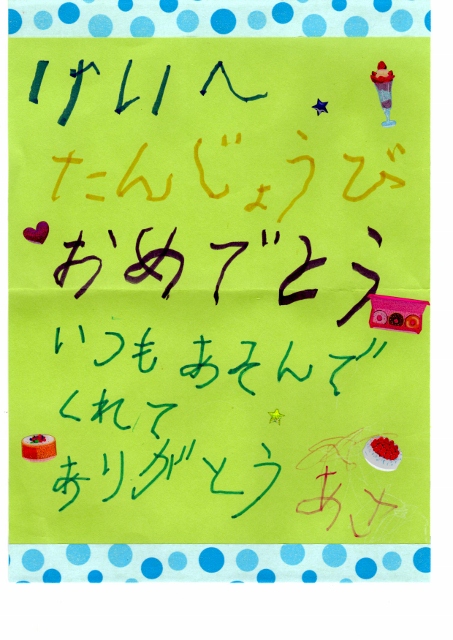 けいへ
たんじょうび
おめでとう
いつもあそんで
くれて
ありがとう
あさ